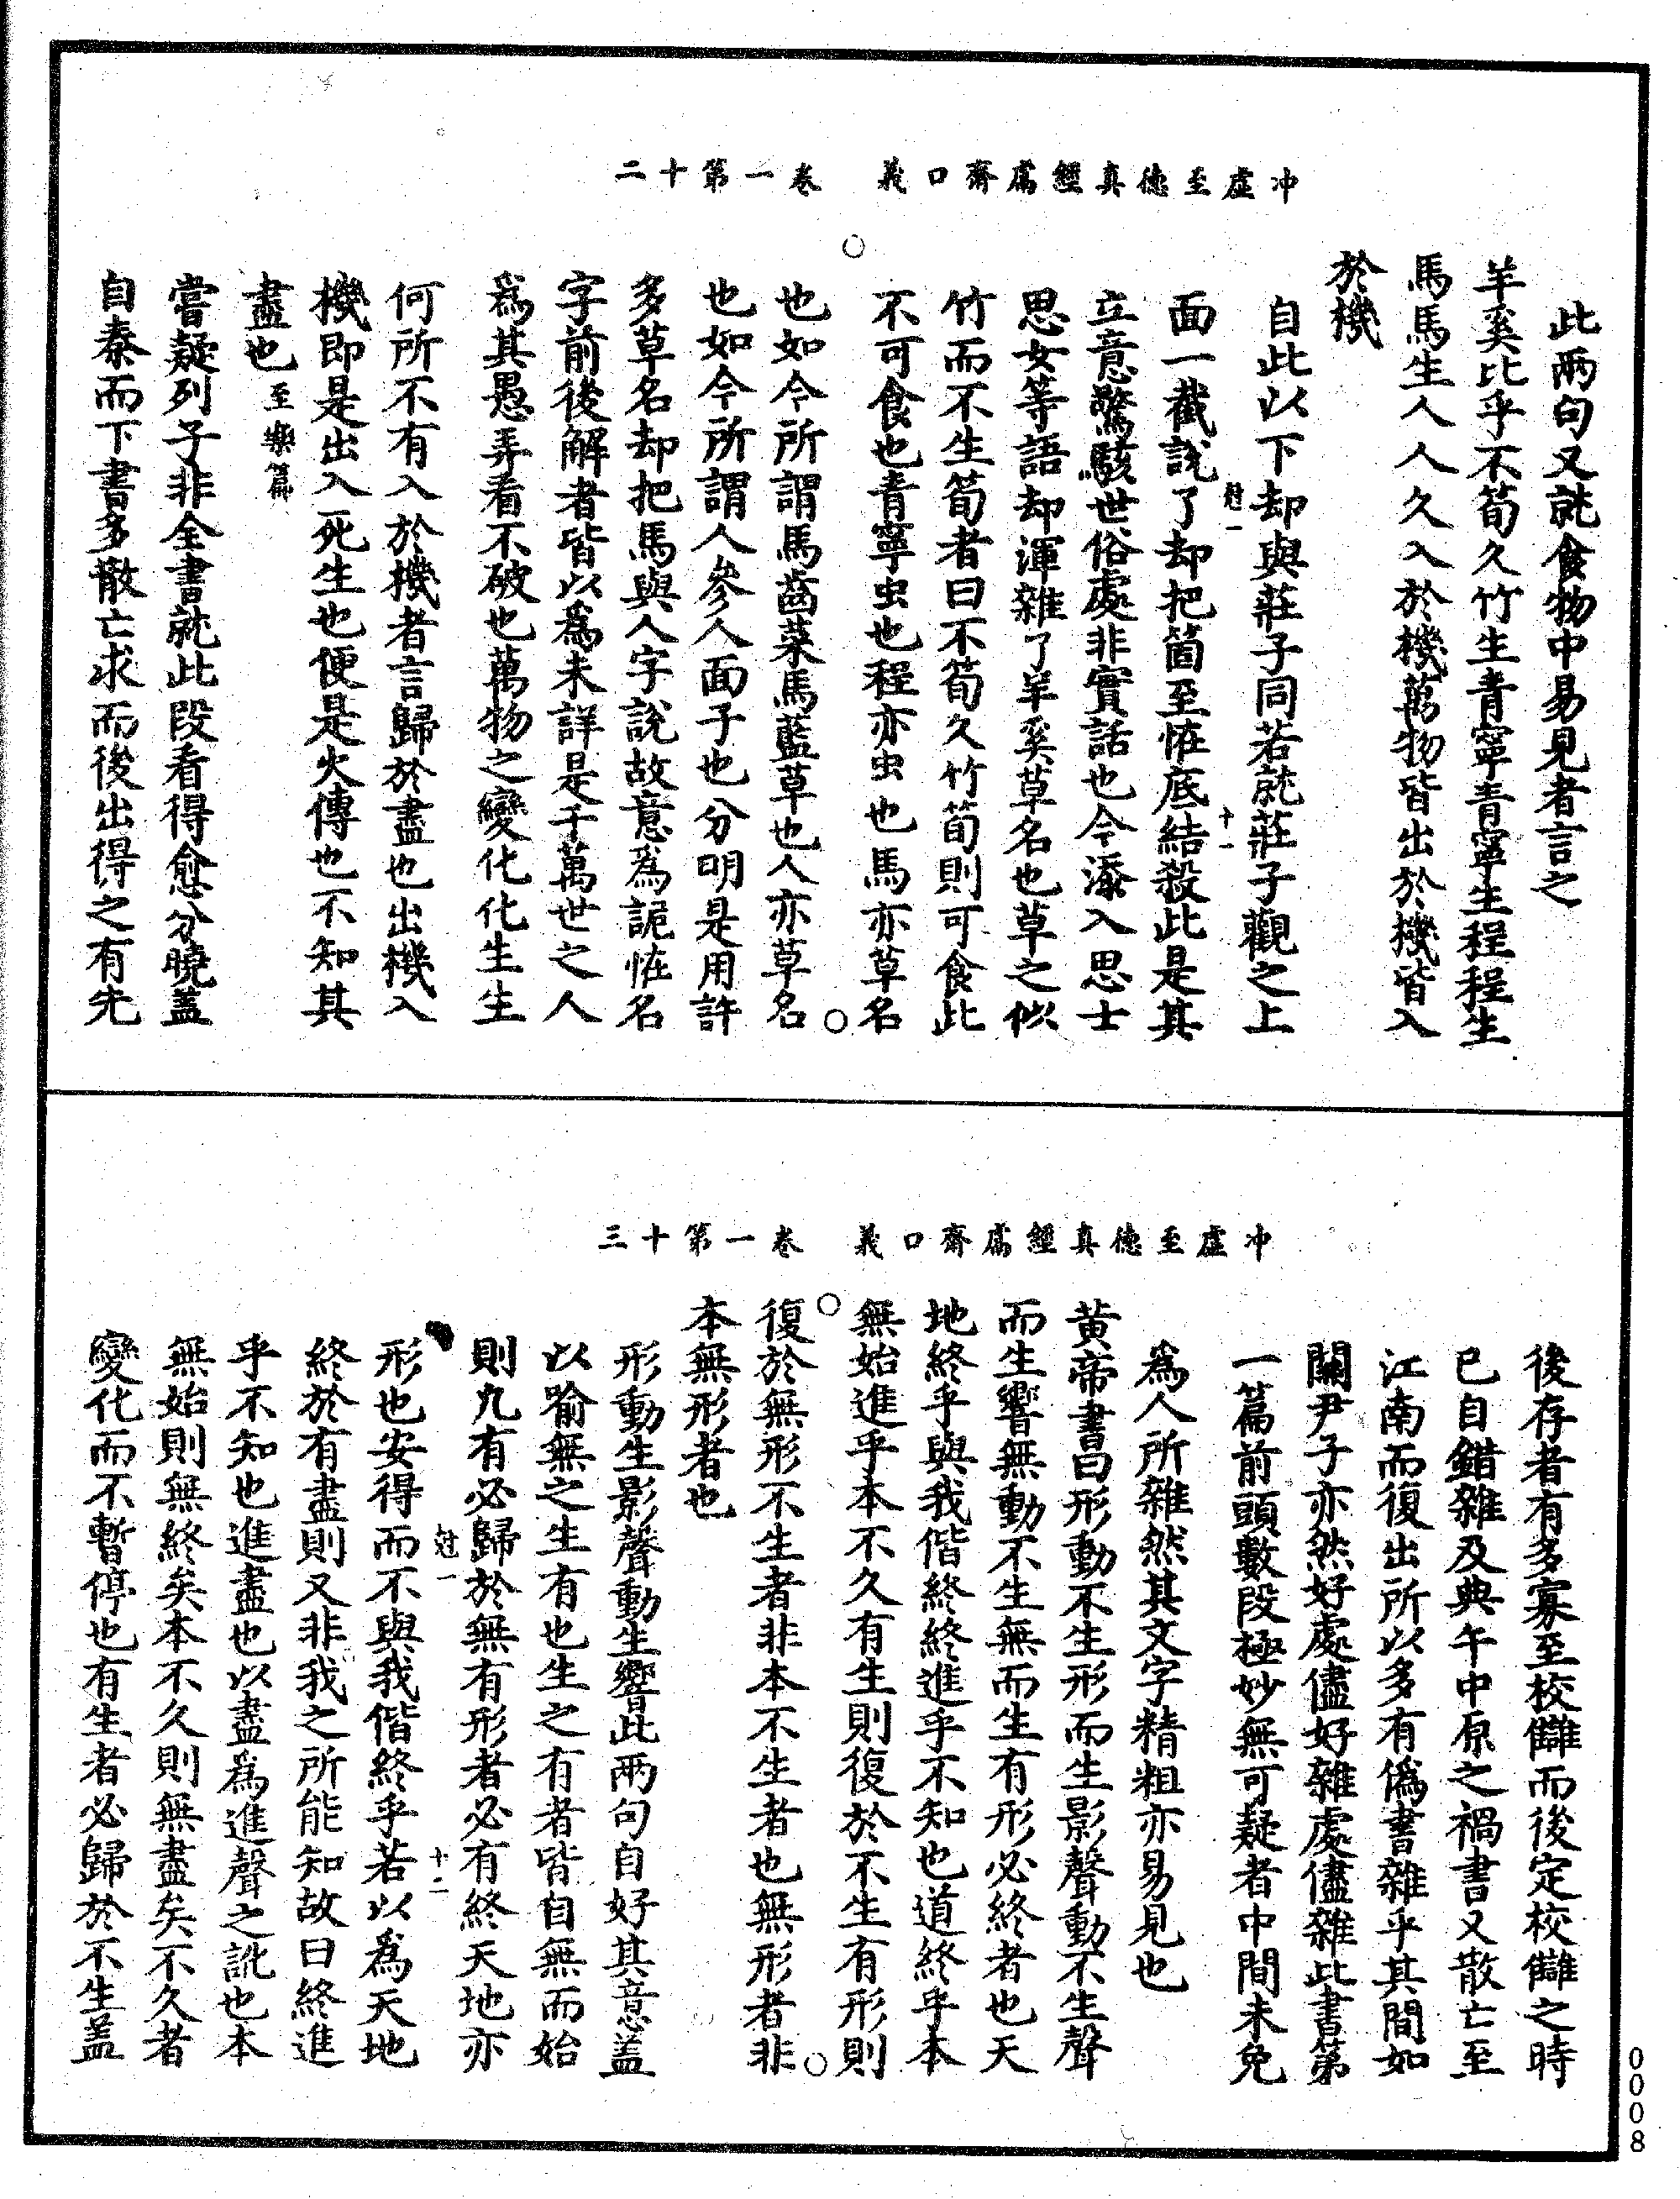 冲虛至德真經鬳齋口義　卷一第十二
此兩句又就食物中易見者言之
羊奚比乎不筍久竹生青寧青寧生程程生
馬馬生人人久入於機萬物皆出於機皆入
於機
自此以下却與莊子同若就莊子觀之上
冠一　十一
面一截說了却把箇至怪底結殺此是其
立意驚駭世俗處非實話也今添入思士
思女等語却渾雜了羊奚草名也草之似
竹而不生筍者曰不筍久竹筍則可食此
不可食也青寧虫也程亦虫也馬亦草名
也如今所謂馬齒菜馬藍草也人亦草名
也如今所謂人參人面子也分明是用許
多草名却把馬與人字說故意爲詭怪名
字前後解者皆以爲未詳是千萬世之人
爲其愚弄看不破也萬物之變化化生生
何所不有入於機者言歸於盡也出機入
機即是出入死生也便是火傳也不知其
盡也至樂篇
嘗疑列子非全書就此段看得愈分曉蓋
自秦而下書多散亡求而後出得之有先
冲虛至德真經鬳齋口義　卷一第十三
後存者有多寡至校讎而後定校讎之時
已自錯雜及典午中原之禍書又散亡至
江南而復出所以多有偽書雜乎其間如
關尹子亦然好處儘好雜處儘雜此書第
一篇前頭數段極妙無可疑者中間未免
爲人所雜然其文字精粗亦易見也
黃帝書曰形動不生形而生影聲動不生聲
而生響無動不生無而生有形必終者也天
地終乎與我偕終終進乎不知也道終乎本
無始進乎本不久有生則復於不生有形則
復於無形不生者非本不生者也無形者非
本無形者也
形動生影聲動生響此兩句自好其意蓋
以喻無之生有也生之有者皆自無而始
則凡有必歸於無有形者必有終天地亦
冠一　十二
形也安得而不與我偕終乎若以爲天地
終於有盡則又非我之所能知故曰終進
乎不知也進盡也以盡爲進聲之訛也本
無始則無終矣本不久則無盡矣不久者
變化而不暫停也有生者必歸於不生蓋
0008